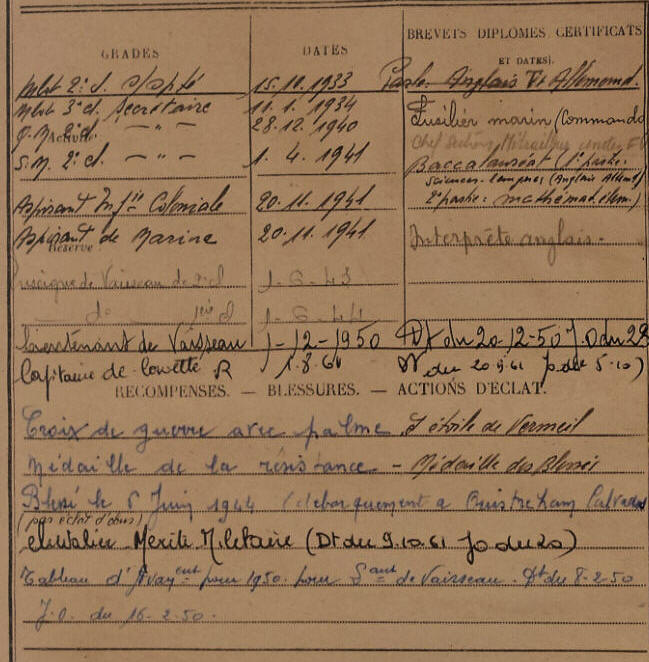 GRADES DATES BREVETS DIPLOMES, CERTIFICATS
ET DATES).
Mlot 2e cl. 15.11.1933 Parle: Anglais Et Allemand.
Mlot 3e cl. Secrétaire 11.1.1934 Fusilier marin (Commando
Q.M. 2e cl. — " — 28.12.1940 Chef section
Activité
S.M. 2e cl. — " — 1. 4. 1941 Baccalauréat (1e partie.
Sciences-langues (Anglais Allemd)
Aspirant Infie Coloniale 20.11.1941 2e partie: mathémat. élem.)
Aspirant de Marine 20.11.1941 Interprète anglais.
Réserve
Enseigne de Vaisseau de 2e cl 1-6-43
— do — 1ère cl 1-6-44
Lieutenant de Vaisseau 1-12-1950 Dt du 20-12-50 J.O du 28
Capitaine de corvette R 1.8.61 Dt du 20.9.61 JO du 5-10)
RECOMPENSES. — BLESSURES. — ACTIONS D'ECLAT.
Croix de guerre avec palme & étoile de Vermeil
Médaille de la résistance - Médaille des Blessés
Blessé le 6 Juin 1944 (débarquement a Ouistreham Calvados
(par éclat d'obus)
Chevalier Mérite Militaire (Dt du 9.10.61 JO du 20)
Tableau d'Avancent pour 1950. pour Lieutt de Vaisseau. Dt du 8-2-50
J.O. du 16-2-50-